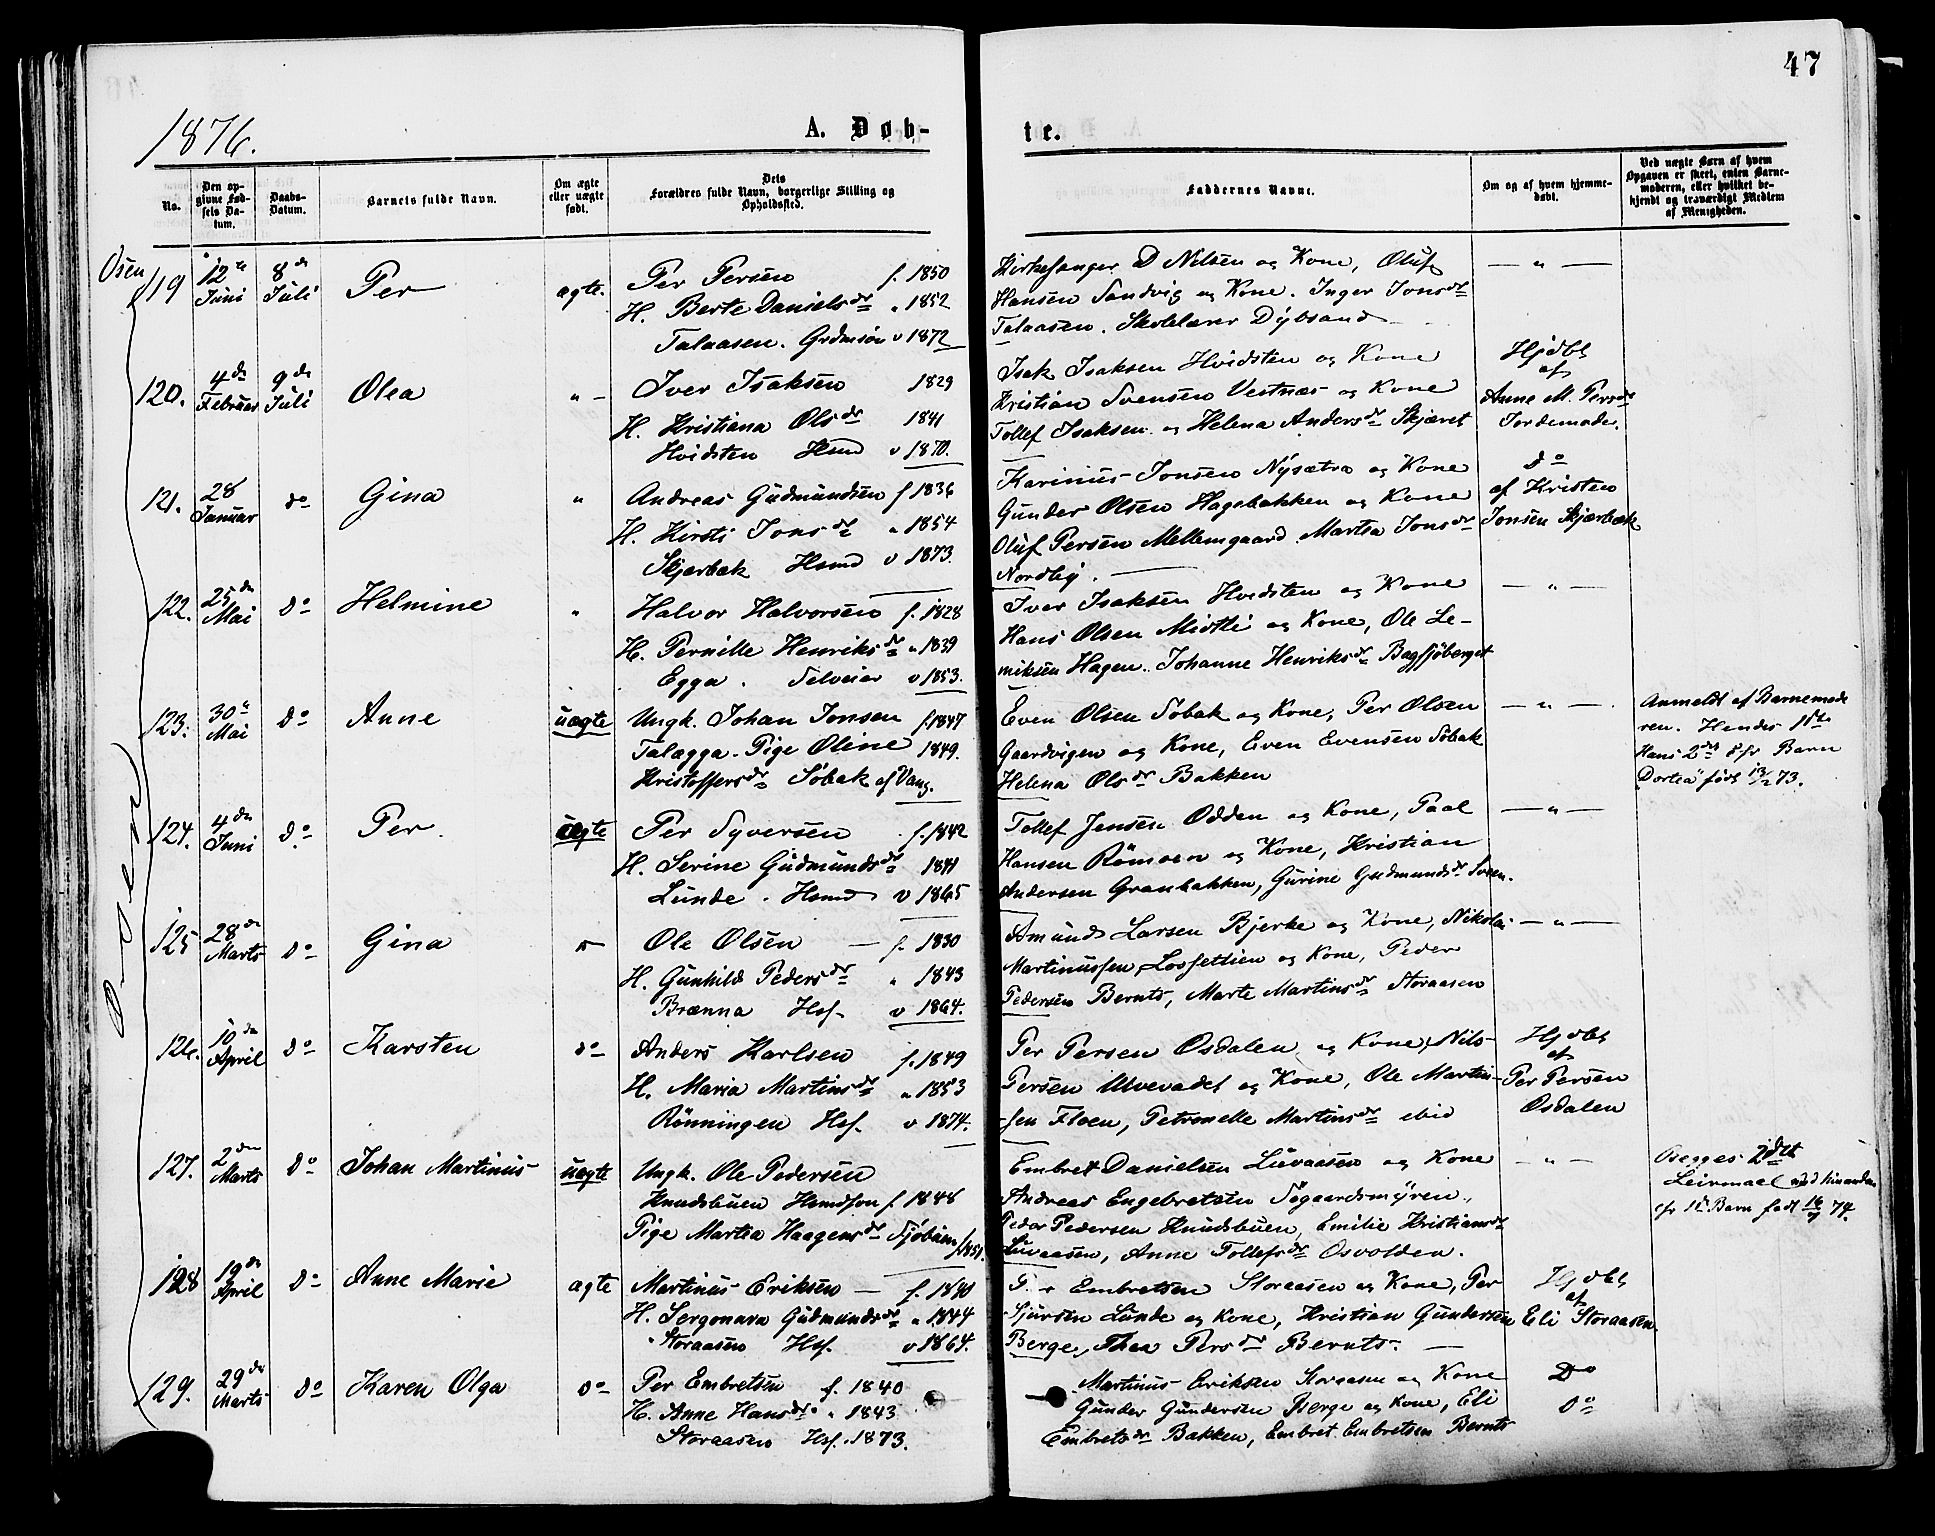 47
1876.
A. Døb-
te.
No.
Den op-
givne Fød-
sels Da-
tum.
Daabs-
Datum.
Barnets fulde Navn.
Om ægte
eller uægte
født.
Dets
Forældres fulde Navn, borgerlige Stilling og
Opholdssted.
Faddernes Navne.
Om og af hvem hjemme-
døbt.
Ved uægte Børn af hvem
Opgaven er skeet, enten Barne-
moderen, eller hvilket be-
kjendt og troværdigt Medlem
af Menigheden.
Osen
119 12te Juni 8de Juli Per ægte.
Per Persen f. 1850
H. Berte Danielsdr " 1852
Talaasen. Grdmsøn v 1872
Kirkesanger D Nilsen og Kone, Oluf
Hansen Sandvig og Kone. Inger Jonsdr
Talaasen. Skolelærer Dybsand
— " —
120. 4de Februar 9de Juli Olea " -
Iver Isaksen 1829
H. Kristiana Olsdr 1841
Hvidsten Hsmd v 1870.
Isak Isaksen Hvidsten og Kone
Kristian Svensen Vestnæs og Kone
Tollef Isaksen og Helena Andersdr Skjæret
Hjdbt
af
Anne M. Persdr
Jordemoder.
121. 28 Januar do Gina "
Andreas Gudmundsen f 1836
H. Kirsti Jonsdr " 1854
Skjærbæk Hsmd v 1873.
Karinus Jonsen Nysætra og Kone
Gunder Olsen Hagebakken og Kone
Oluf Persen Mellemgaard. Martea Jonsdr
Nordli.
Do
af Kristen
Jonsen Skjærbæk
122. 25de Mai Do Helmine "
Halvor Halvorsen f. 1828
H. Pernille Henriksdr " 1839
Egga. Selveier v 1853.
Iver Isaksen Hvidsten og Kone
Hans Olsen Midtli og Kone, Ole Le-
miksen Hagen. Johanne Henriksdr Bagsjøberget
— " —
123. 30te Mai Do Anne uægte
Ungk. Johan Jonsen f 1847
Talægga. Pige Oline 1849.
Kristoffersdr Søbak af Vang.
Even Olsen Søbak og Kone, Per Olsen
Gaardvigen og Kone, Even Evensen Søbak
Helena Olsdr Bakken
— " —
Anmeldt af Barnemode
ren. Hendes 1ste
Hans 2det
Dortea født 13/2 73.
124. 4de Juni Do Per. ægte
Per Syversen f. 1842
H. Serine Gudmundsdr 1841
Lunde. Hsmd v 1865
Tollef Jensen Odden og Kone, Paal
Hansen Rømoen og Kone, Kristian
Andersen Granbakken, Gurine Gudmundsdr Sveen.
— " —
125 28de Marts Do Gina
Ole Olsen f. 1830
H. Gunhild Pedersdr " 1843
Brænna Hsf. v 1864.
Amund Larsen Bjerke og Kone, Nikolai
Martinussen Lossetlien og Kone, Peder
Pedersen Bernts, Marte Martinsdr Storaasen
— " —
126. 10de April Do Karsten do
Anders Karlsen f. 1849
H. Maria Martinsdr " 1853
Rønningen Hsf. v 1874.
Per Persen Osdalen og Kone, Nils
Persen Ulvevadet og Kone, Ole Martin-
sen Floen, Petronelle Martinsdr ibid
Hjdbt
af
Per Persen
Osdalen
127. 2den Marts Do Johan Martinus uægte
Ungk. Ole Pedersen
Knudsbuen Hsmdsøn f. 1848
Pige Martea Haagensdr Sjøbuen f. 1851.
Embret Danielsen Livaasen og Kone
Andreas Engebretsen Søgaardsmyren.
Peder Pedersen Knudsbuen, Emilie Kristiansdr
Livaasen, Anne Tollefsdr Osvolden.
— " —
Begges 2det
Leiermaal med hinanden
1ste Barn født 16/7 74.
128 19de April Do Anne Marie ægte
Martinus Eriksen f. 1840
H. Sergonara Gudmundsdr " 1844
Storaasen Hsf. v 1864.
Embretsen Storaasen og Kone, Per
Sjursen Lunde og Kone, Kristian Gundersen
Berge, Thea Persdr Bernts.
Hjdbt
af
Eli Storaasen.
129. 29de Marts do Karen Olga do
Per Embretsen f. 1840
H. Anne Hansdr " 1843
Storaasen Hsf. 1873.
Martinus Eriksen Storaasen og Kone
Gunder Gundersen Berge og Kone, Eli
Embretsdr Bakken, Embret Embretsen Bernts
Do
do